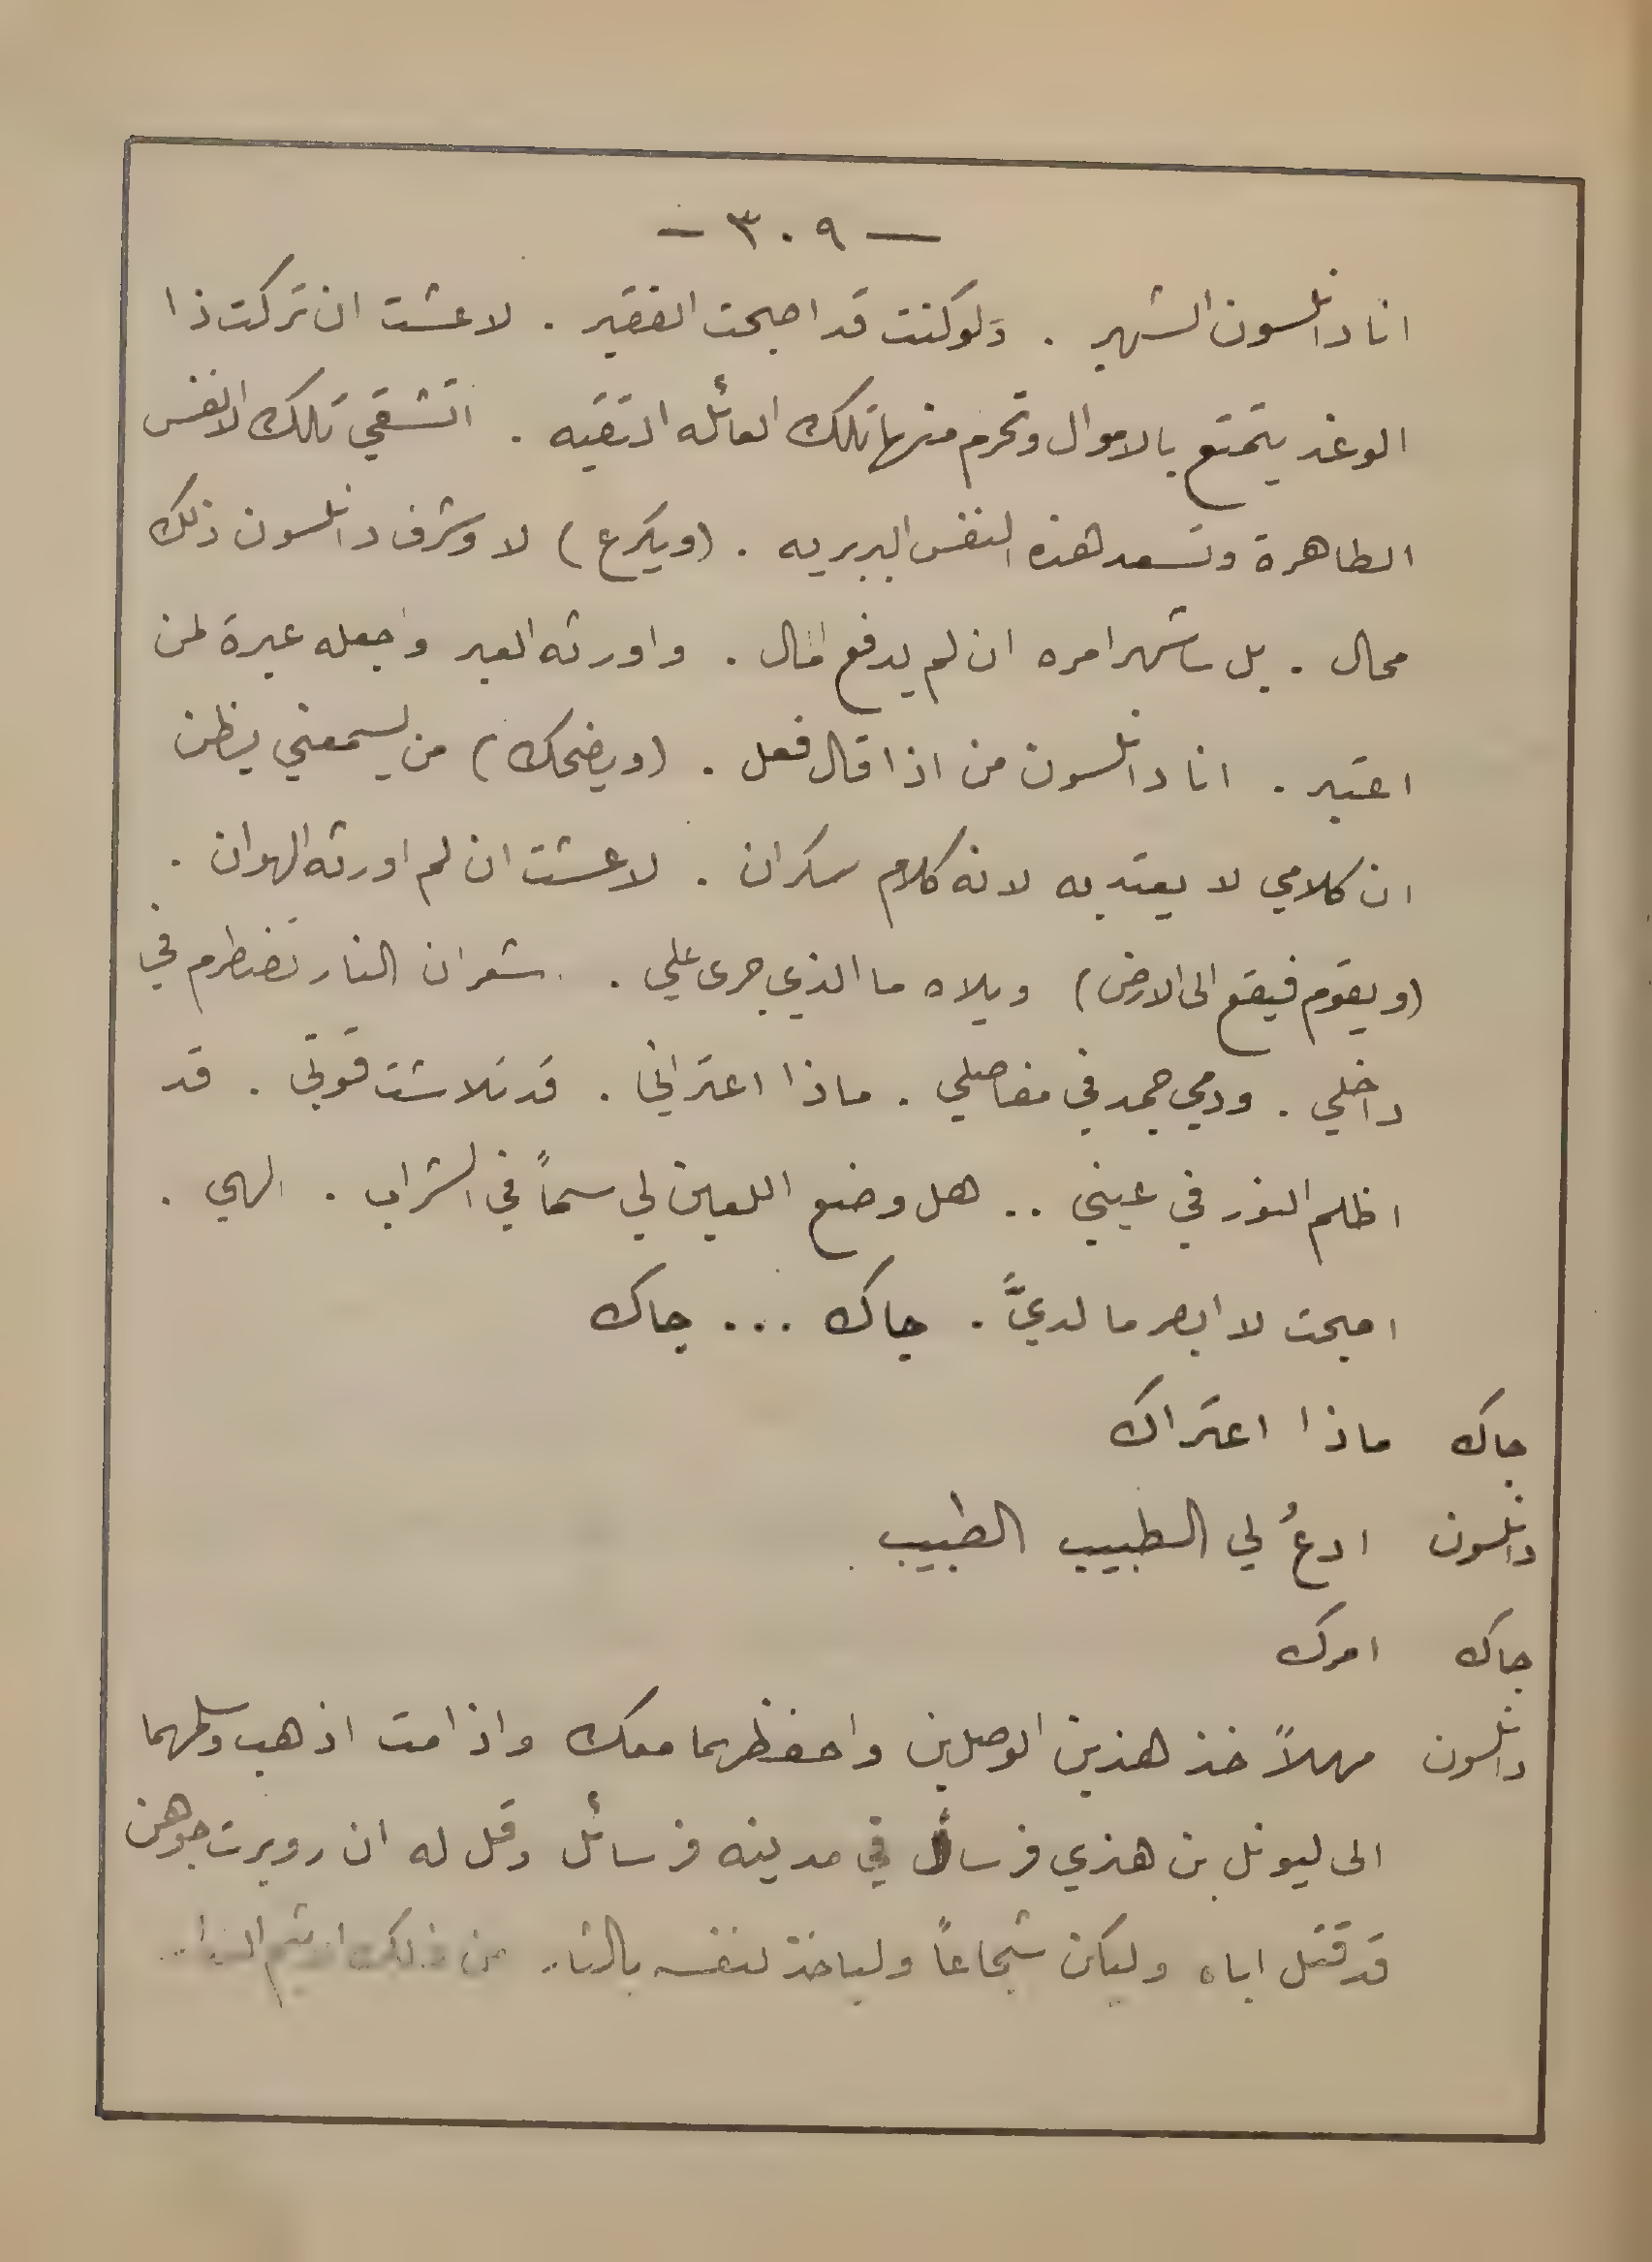 — ٣٠٩ —
انا دانلسون الشهير . ولوكنت قد اصبحت الفقير . لا عشت ان تركت ذا
الوغد يتمتع بالاموال وتحرم منها تلك العائله التقيه . اتشقي تلك الانفس
الطاهرة وتسعد هذه النفس البربريه . (ويكرع) لا وشرف دانلسون ذلك
محال . بل ساشهر امره ان لم يدفع المال . واورثه العبر واجعله عبرة لمن
اعتبر . انا دانلسون من اذا قال فعل . (ويضحك) من يسمعني يظن
ان كلامي لا يعتد به لانه كلام سكران . لا عشت ان لم اورثه الهوان .
(ويقوم فيقع الى الارض) ويلاه ما الذي جرى علي . شعر ان النار تضطرم في
داخلي . ودمي جمد في مفاصلي . ماذا اعتراني . قد تلاشت قوتي . قد
اظلم النور في عيني .. هل وضع اللعين لي سماً في الشراب . الهي .
اصبحت لا ابصر ما لديَّ . جاك ... جاك
جاك ماذا اعتراك
دانلسون ادعُ لي الطبيب الطبيب
جاك امرك
دانلسون مهلاً خذ هذين الوصلين واحفظهما معك واذا مت اذهب وسلمهما
الى ليونل بن هنري فرسائل في مدينه فرسائل وقل له ان روبرت جوهن
قد قتل اباه وليكن شجاعاً ولياخذ لنفسه بالثار من